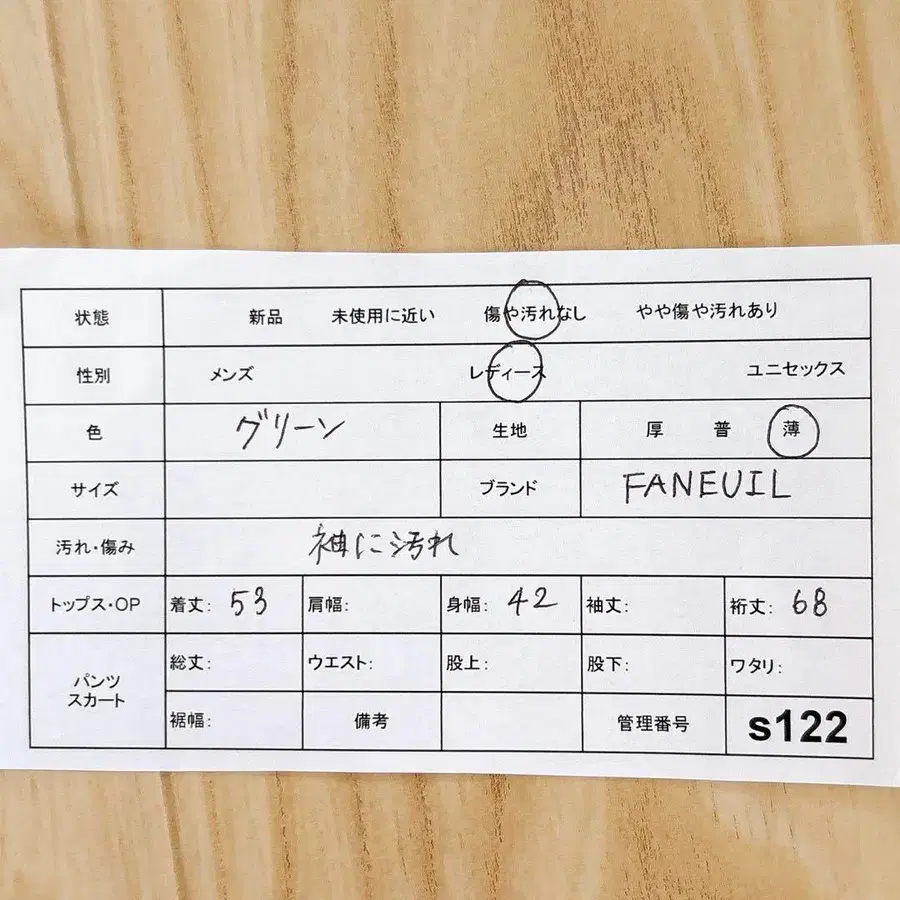 状態 新品 未使用に近い 傷や汚れなし やや傷や汚れあり
性別 メンズ レディース ユニセックス
色 グリーン 生地 厚 普 薄
サイズ ブランド FANEUIL
汚れ・傷み 袖に汚れ
トップス・OP 着丈: 53 肩幅: 身幅: 42 袖丈: 裄丈: 68
パンツ スカート 総丈: ウエスト: 股上: 股下: ワタリ:
裾幅: 備考 管理番号 s122